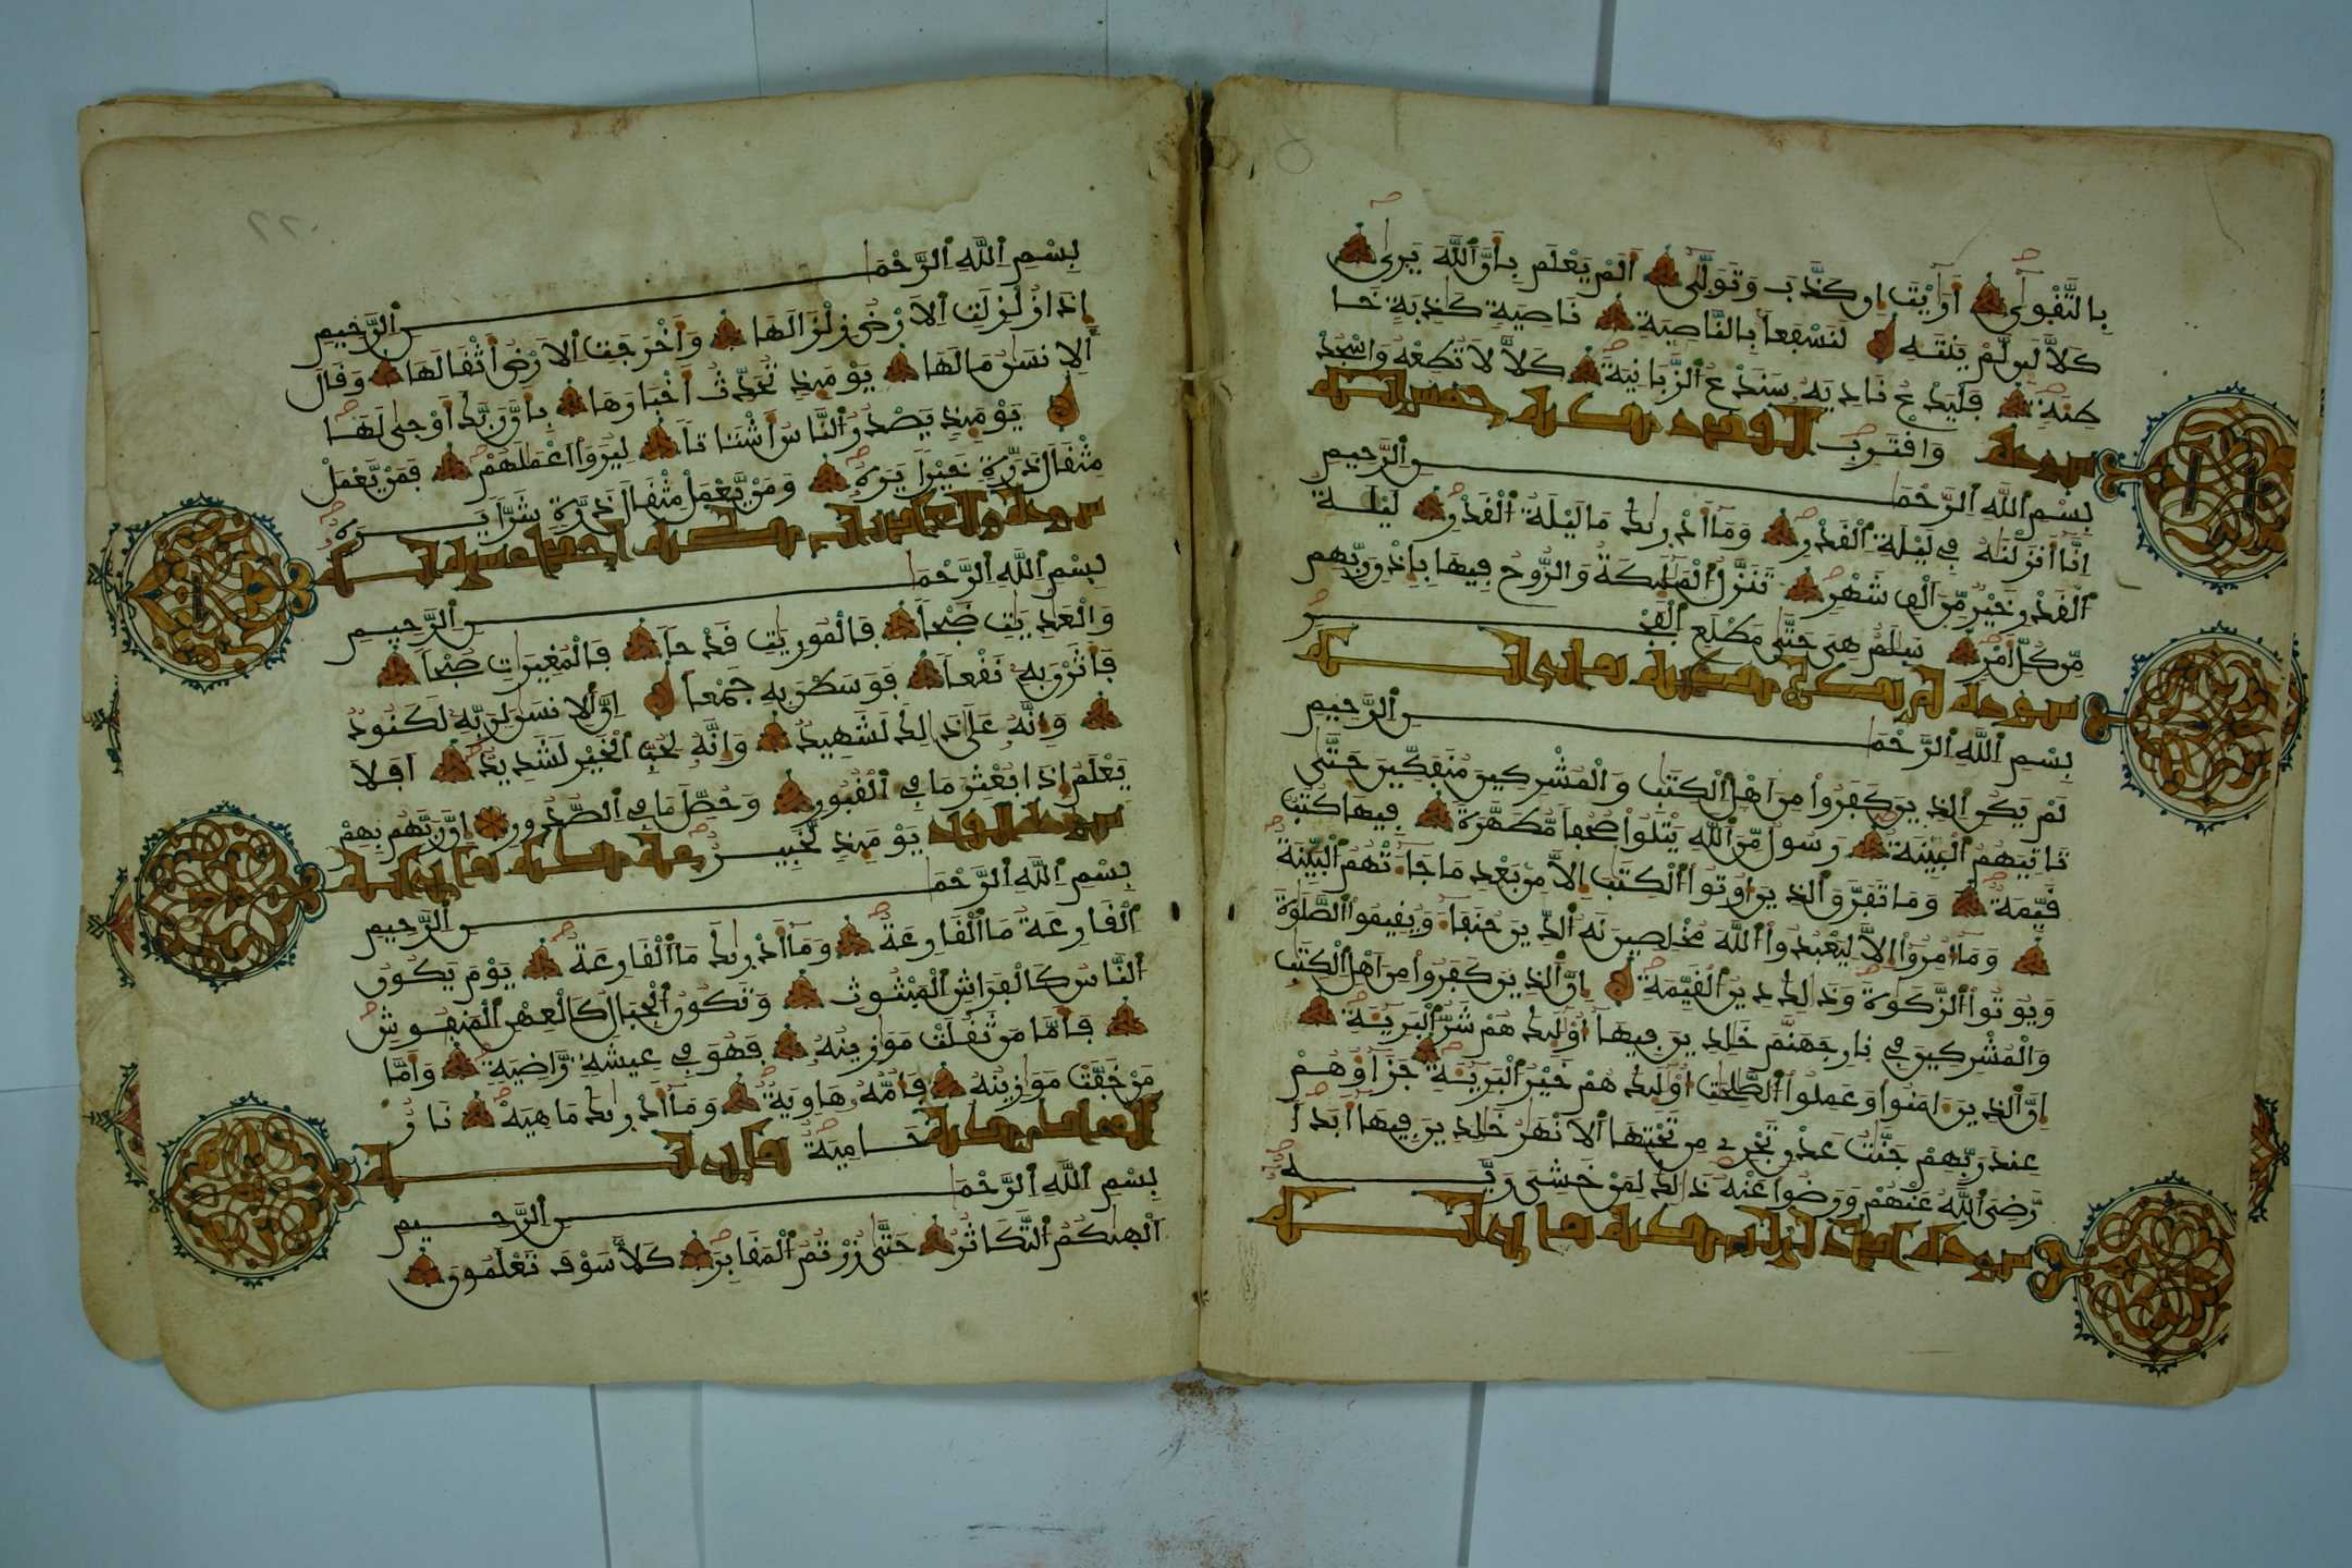 بِالتَّقْوٜىٰ أَرَٰيْتَ إِن كَذَّبَ وَتَوَلّٜىٰ أَلَمْ يَعْلَم بِأَنَّ ٱللَّهَ يَرٜىٰ
كَلَّا لَئِن لَّمْ يَنتَهِ لَنَسْفَعاً بِالنَّاصِيَةِ نَاصِيَةٍ كَٰذِبَةٍ خَا
طِئَةٍ فَلْيَدْعُ نَادِيَهُ سَنَدْعُ ٱلزَّبَانِيَةَ كَلَّا لَا تُطِعْهُ وَٱسْجُدْ
وَٱقْتَرِبْ
سورة القدر مكية خمس ءاية
بِسْمِ ٱللَّهِ ٱلرَّحْمَٰنِ ٱلرَّحِيمِ
إِنَّا أَنزَلْنَٰهُ فِي لَيْلَةِ ٱلْقَدْرِ وَمَا أَدْرٜىٰكَ مَا لَيْلَةُ ٱلْقَدْرِ لَيْلَةُ
ٱلْقَدْرِ خَيْرٌ مِّنَ ٱلْفِ شَهْرٍ تَنَزَّلُ ٱلْمَلَٰئِكَةُ وَالرُّوحُ فِيهَا بِإِذْنِ رَبِّهِم
مِّن كُلِّ أَمْرٍ سَلَٰمٌ هِيَ حَتَّىٰ مَطْلَعِ ٱلْفَجْرِ
سورة لم يكن مكية ثماني ءاية
بِسْمِ ٱللَّهِ ٱلرَّحْمَٰنِ ٱلرَّحِيمِ
لَمْ يَكُنِ ٱلذِينَ كَفَرُوا مِنَ اهْلِ ٱلْكِتَٰبِ وَالْمُشْرِكِينَ مُنفَكِّينَ حَتَّىٰ
تَاتِيَهُمُ ٱلْبَيِّنَةُ رَسُولٌ مِّنَ ٱللَّهِ يَتْلُوا صُحُفاً مُّطَهَّرَةً فِيهَا كُتُبٌ
قَيِّمَةٌ وَمَا تَفَرَّقَ ٱلذِينَ أُوتُوا ٱلْكِتَٰبَ إِلَّا مِن بَعْدِ مَا جَاءَتْهُمُ ٱلْبَيِّنَةُ
وَمَا أُمِرُوا إِلَّا لِيَعْبُدُوا ٱللَّهَ مُخْلِصِينَ لَهُ ٱلدِّينَ حُنَفَاءَ وَيُقِيمُوا ٱلصَّلَوٰةَ
وَيُوتُوا ٱلزَّكَوٰةَ وَذَٰلِكَ دِينُ ٱلْقَيِّمَةِ إِنَّ ٱلذِينَ كَفَرُوا مِنَ اهْلِ ٱلْكِتَٰبِ
وَالْمُشْرِكِينَ فِي نَارِ جَهَنَّمَ خَٰلِدِينَ فِيهَا أُوْلَٰئِكَ هُمْ شَرُّ ٱلْبَرِيئَةِ
إِنَّ ٱلذِينَ ءَامَنُوا وَعَمِلُوا ٱلصَّٰلِحَٰتِ أُوْلَٰئِكَ هُمْ خَيْرُ ٱلْبَرِيئَةِ جَزَاؤُهُمْ
عِندَ رَبِّهِمْ جَنَّٰتُ عَدْنٍ تَجْرِي مِن تَحْتِهَا ٱلَانْهَٰرُ خَٰلِدِينَ فِيهَا أَبَداً
رَّضِيَ ٱللَّهُ عَنْهُمْ وَرَضُوا عَنْهُ ذَٰلِكَ لِمَنْ خَشِيَ رَبَّهُ
سورة إذا زلزلت مكية ثماني ءاية
بِسْمِ ٱللَّهِ ٱلرَّحْمَٰنِ ٱلرَّحِيمِ
إِذَا زُلْزِلَتِ ٱلَارْضُ زِلْزَالَهَا وَأَخْرَجَتِ ٱلَارْضُ أَثْقَالَهَا وَقَالَ
ٱلِانسَٰنُ مَا لَهَا يَوْمَئِذٍ تُحَدِّثُ أَخْبَارَهَا بِأَنَّ رَبَّكَ أَوْحٜىٰ لَهَا
يَوْمَئِذٍ يَصْدُرُ ٱلنَّاسُ أَشْتَاتاً لِّيُرَوَا اعْمَٰلَهُمْ فَمَنْ يَّعْمَلْ
مِثْقَالَ ذَرَّةٍ خَيْراً يَرَهُ وَمَنْ يَّعْمَلْ مِثْقَالَ ذَرَّةٍ شَرّاً يَرَهُ
سورة والعاديات مكية احدى عشرة ءاية
بِسْمِ ٱللَّهِ ٱلرَّحْمَٰنِ ٱلرَّحِيمِ
وَالْعَٰدِيَٰتِ ضَبْحاً فَالْمُورِيَٰتِ قَدْحاً فَالْمُغِيرَٰتِ صُبْحاً
فَأَثَرْنَ بِهِ نَقْعاً فَوَسَطْنَ بِهِ جَمْعاً إِنَّ ٱلِانسَٰنَ لِرَبِّهِ لَكَنُودٌ
وَإِنَّهُ عَلَىٰ ذَٰلِكَ لَشَهِيدٌ وَإِنَّهُ لِحُبِّ ٱلْخَيْرِ لَشَدِيدٌ أَفَلَا
يَعْلَمُ إِذَا بُعْثِرَ مَا فِي ٱلْقُبُورِ وَحُصِّلَ مَا فِي ٱلصُّدُورِ إِنَّ رَبَّهُم بِهِمْ
يَوْمَئِذٍ لَّخَبِيرٌ
سورة القارعة مكية ثماني ءاية
بِسْمِ ٱللَّهِ ٱلرَّحْمَٰنِ ٱلرَّحِيمِ
ٱلْقَارِعَةُ مَا ٱلْقَارِعَةُ وَمَا أَدْرٜىٰكَ مَا ٱلْقَارِعَةُ يَوْمَ يَكُونُ
ٱلنَّاسُ كَالْفَرَاشِ ٱلْمَبْثُوثِ وَتَكُونُ ٱلْجِبَالُ كَالْعِهْنِ ٱلْمَنفُوشِ
فَأَمَّا مَن ثَقُلَتْ مَوَٰزِينُهُ فَهُوَ فِي عِيشَةٍ رَّاضِيَةٍ وَأَمَّا
مَنْ خَفَّتْ مَوَٰزِينُهُ فَأُمُّهُ هَاوِيَةٌ وَمَا أَدْرٜىٰكَ مَا هِيَهْ نَارٌ
حَامِيَةٌ
بِسْمِ ٱللَّهِ ٱلرَّحْمَٰنِ ٱلرَّحِيمِ
أَلْهٜىٰكُمُ ٱلتَّكَاثُرُ حَتَّىٰ زُرْتُمُ ٱلْمَقَابِرَ كَلَّا سَوْفَ تَعْلَمُونَ